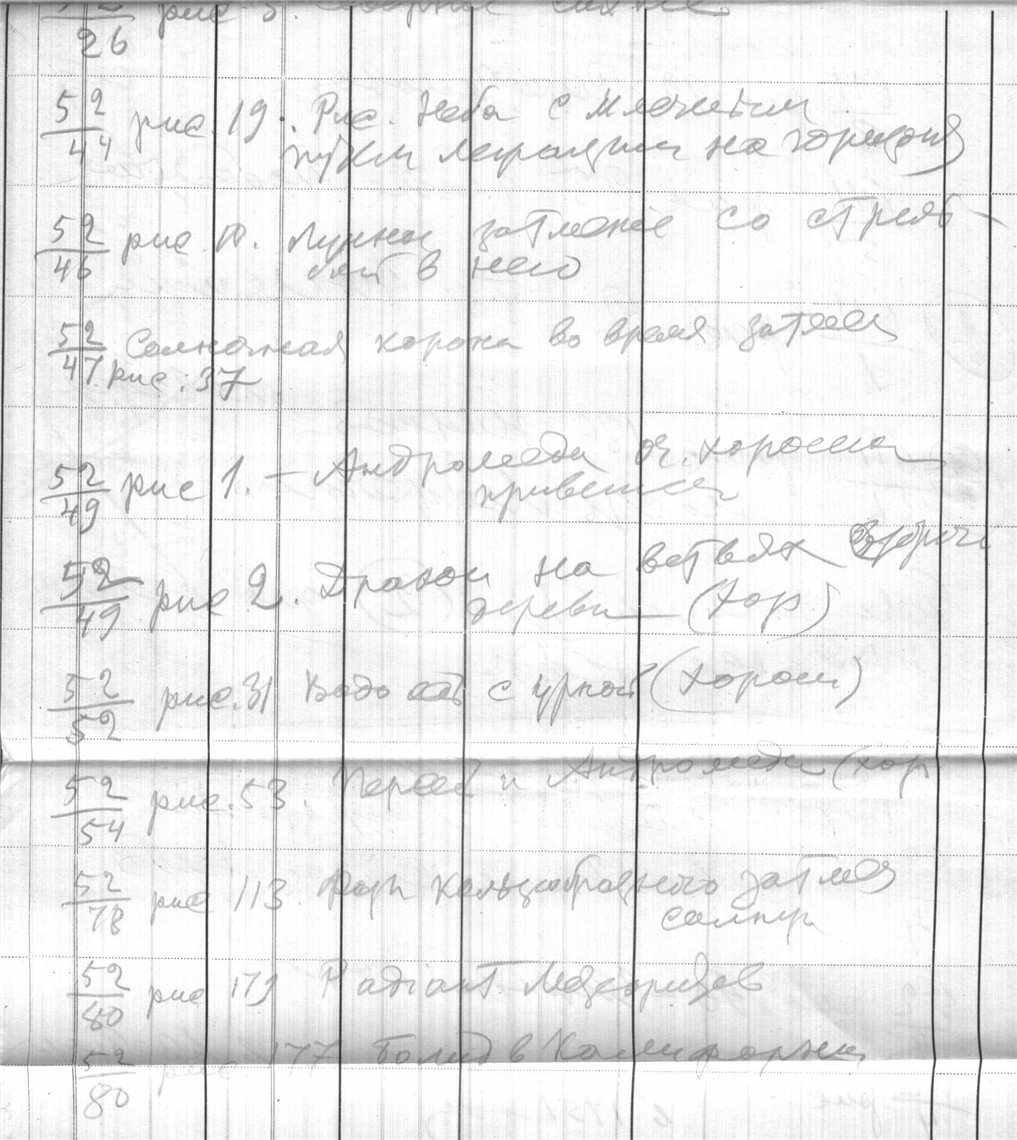 26 рис 5. Северное сияние
52/44 рис. 19. Рис. неба с Млечным
путем лежащим на горизонте
52/46 рис 10. Лунное затмение со стрель-
бой в него
52/47 Солнечная корона во время затмен
рис. 37
52/49 рис 1. – Андромеда оч. хорошая
52/49 рис 2. Дракон на ветвях
дерева (хор)
52/52 рис. 31 Водолей с урной (хорош)
52/54 рис. 53. Персей и Андромеда (хор
52/78 рис 113. кольцеобразного затмен
солнца
52/80 рис 179 Radiant Леонидов
52/80 рис 177 Болид в Калифорнии